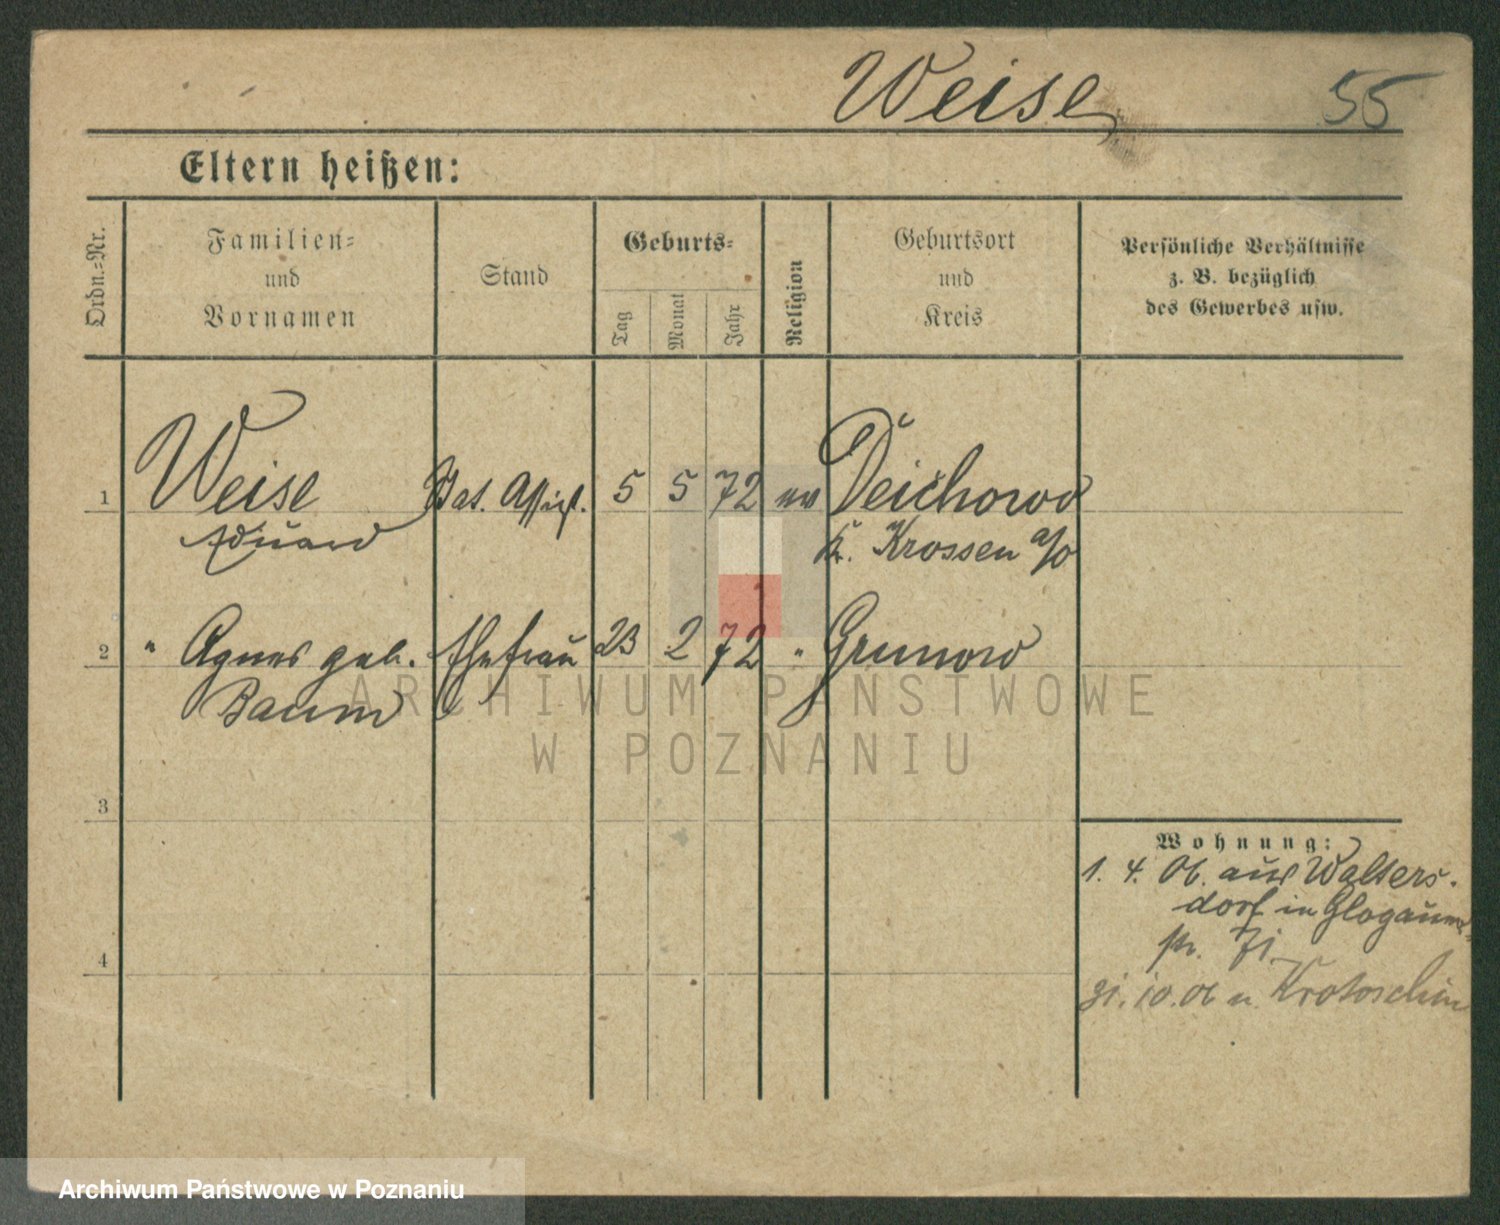 Weise 55
Eltern heißen:
Ordn.-Nr.
Familien-
und
Vornamen
Stand
Geburts-
Tag
Monat
Jahr
Religion
Geburtsort
und
Kreis
Persönliche Verhältnisse
z. B. bezüglich
des Gewerbes usw.
1 Weise Bat. Assist. 5 5 72 ev Deichow
Eduard Kr. Krossen a/O
2 " Agnes geb. Ehefrau 23 2 72 " Grunow
Baum
3
4
Wohnung:
1. 4. 06. aus Walters-
dorf in Glogauer-
str. 71
31. 10. 06 n. Krotoschin
ARCHIWUM PAŃSTWOWE
W POZNANIU
Archiwum Państwowe w Poznaniu